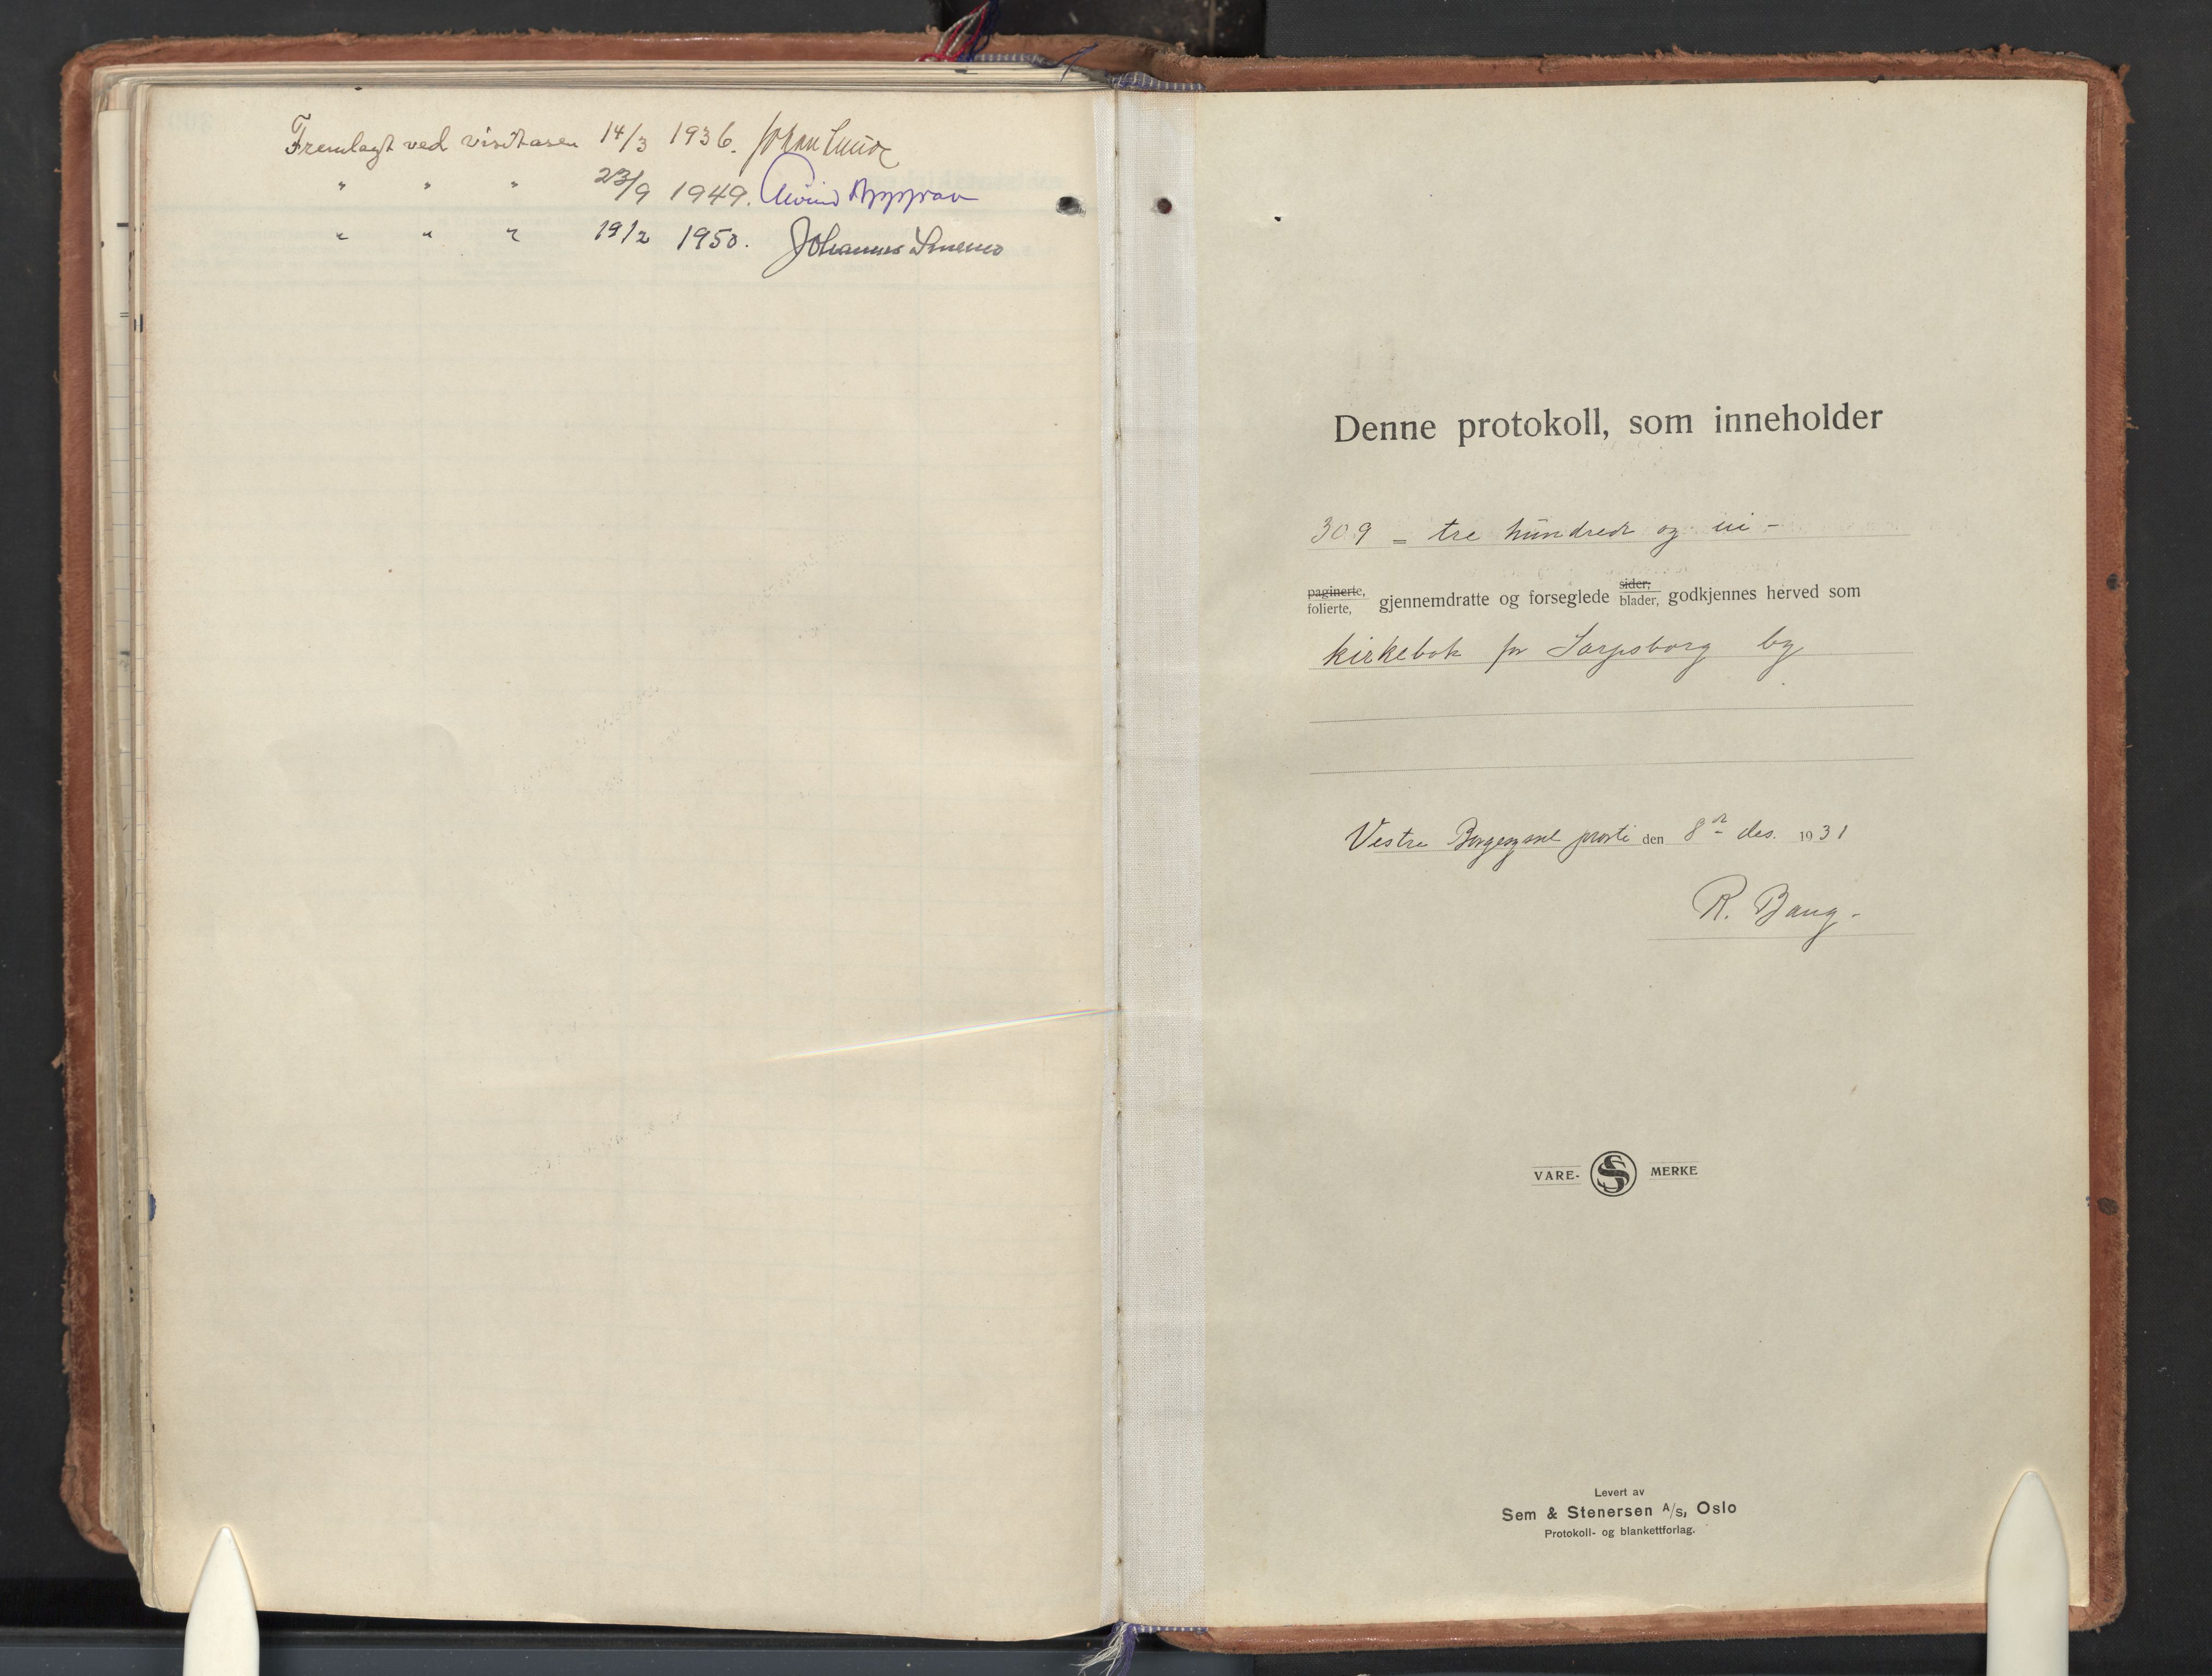 Fremlagt ved visitasen 14/3 1936. Johan Lunde
" " " 23/9 1949. Eivind Berggrav
" " " 19/2 1950. Johannes Smemo
Denne protokoll, som inneholder
309 = tre hundrede og ni -
paginerte, folierte, gjennemdratte og forseglede sider, blader, godkjennes herved som
kirkebok for Sarpsborg by
Vestre Borgesyssel prosti den 8de des. 1931
R. Bang.
VARE- S MERKE
Levert av
Sem & Stenersen A/s, Oslo
Protokoll- og blankettforlag.